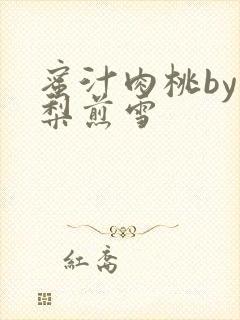 蜜汁肉桃by
梨煎雪
红斋